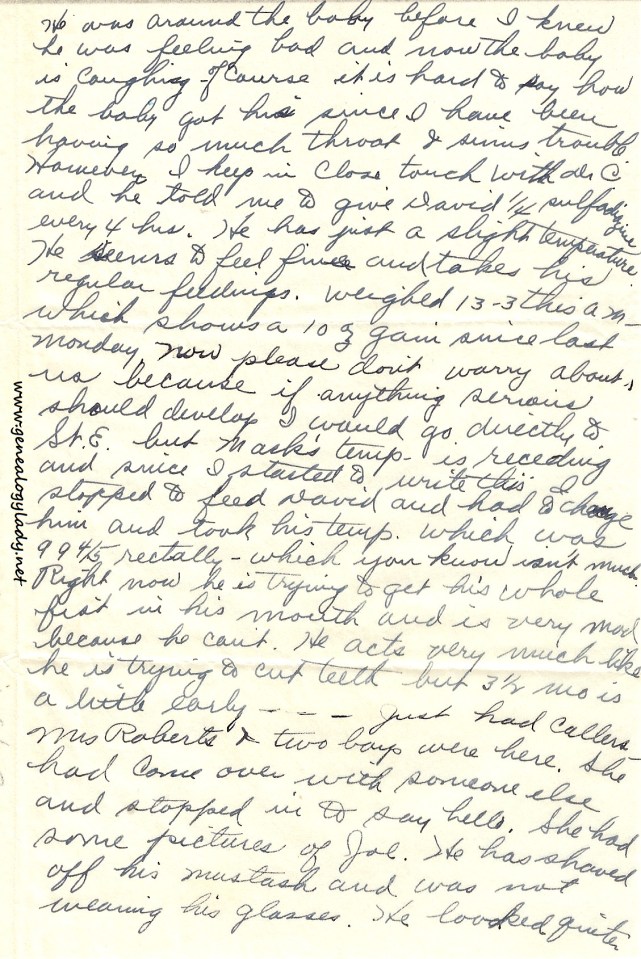 He was around the baby before I knew
he was feeling bad and now the baby
is coughing - Of Course it is hard to say how
the baby got his since I have been
having so much throat & sinus trouble
However, I keep in close touch with Dr. C.
and he told me to give David 1/4 sulfadizine
every 4 hrs. He has just a slight temperature.
He seems to feel fine and takes his
regular feedings. Weighed 13-3 this a.m -
which shows a 10 oz gain since last
monday. Now please don't worry about
us because if anything serious
should develop I would go directly to
St. E. but Mark's temp - is receding
and since I started to write this I
stopped to feed David and had to change
him and took his temp. which was
99 4/5 rectally - which you know isn't much.
Right now he is trying to get his whole
fist in his mouth and is very mad
because he can't. He acts very much like
he is trying to cut teeth but 3 1/2 mo is
a little early - - - Just had callers
Mrs Roberts & two boys were here. She
had come over with someone else
and stopped in to say hello. She had
some pictures of Joe. He has shaved
off his mustash and was not
wearing his glasses. He loooked quite
www.genealogylady.net